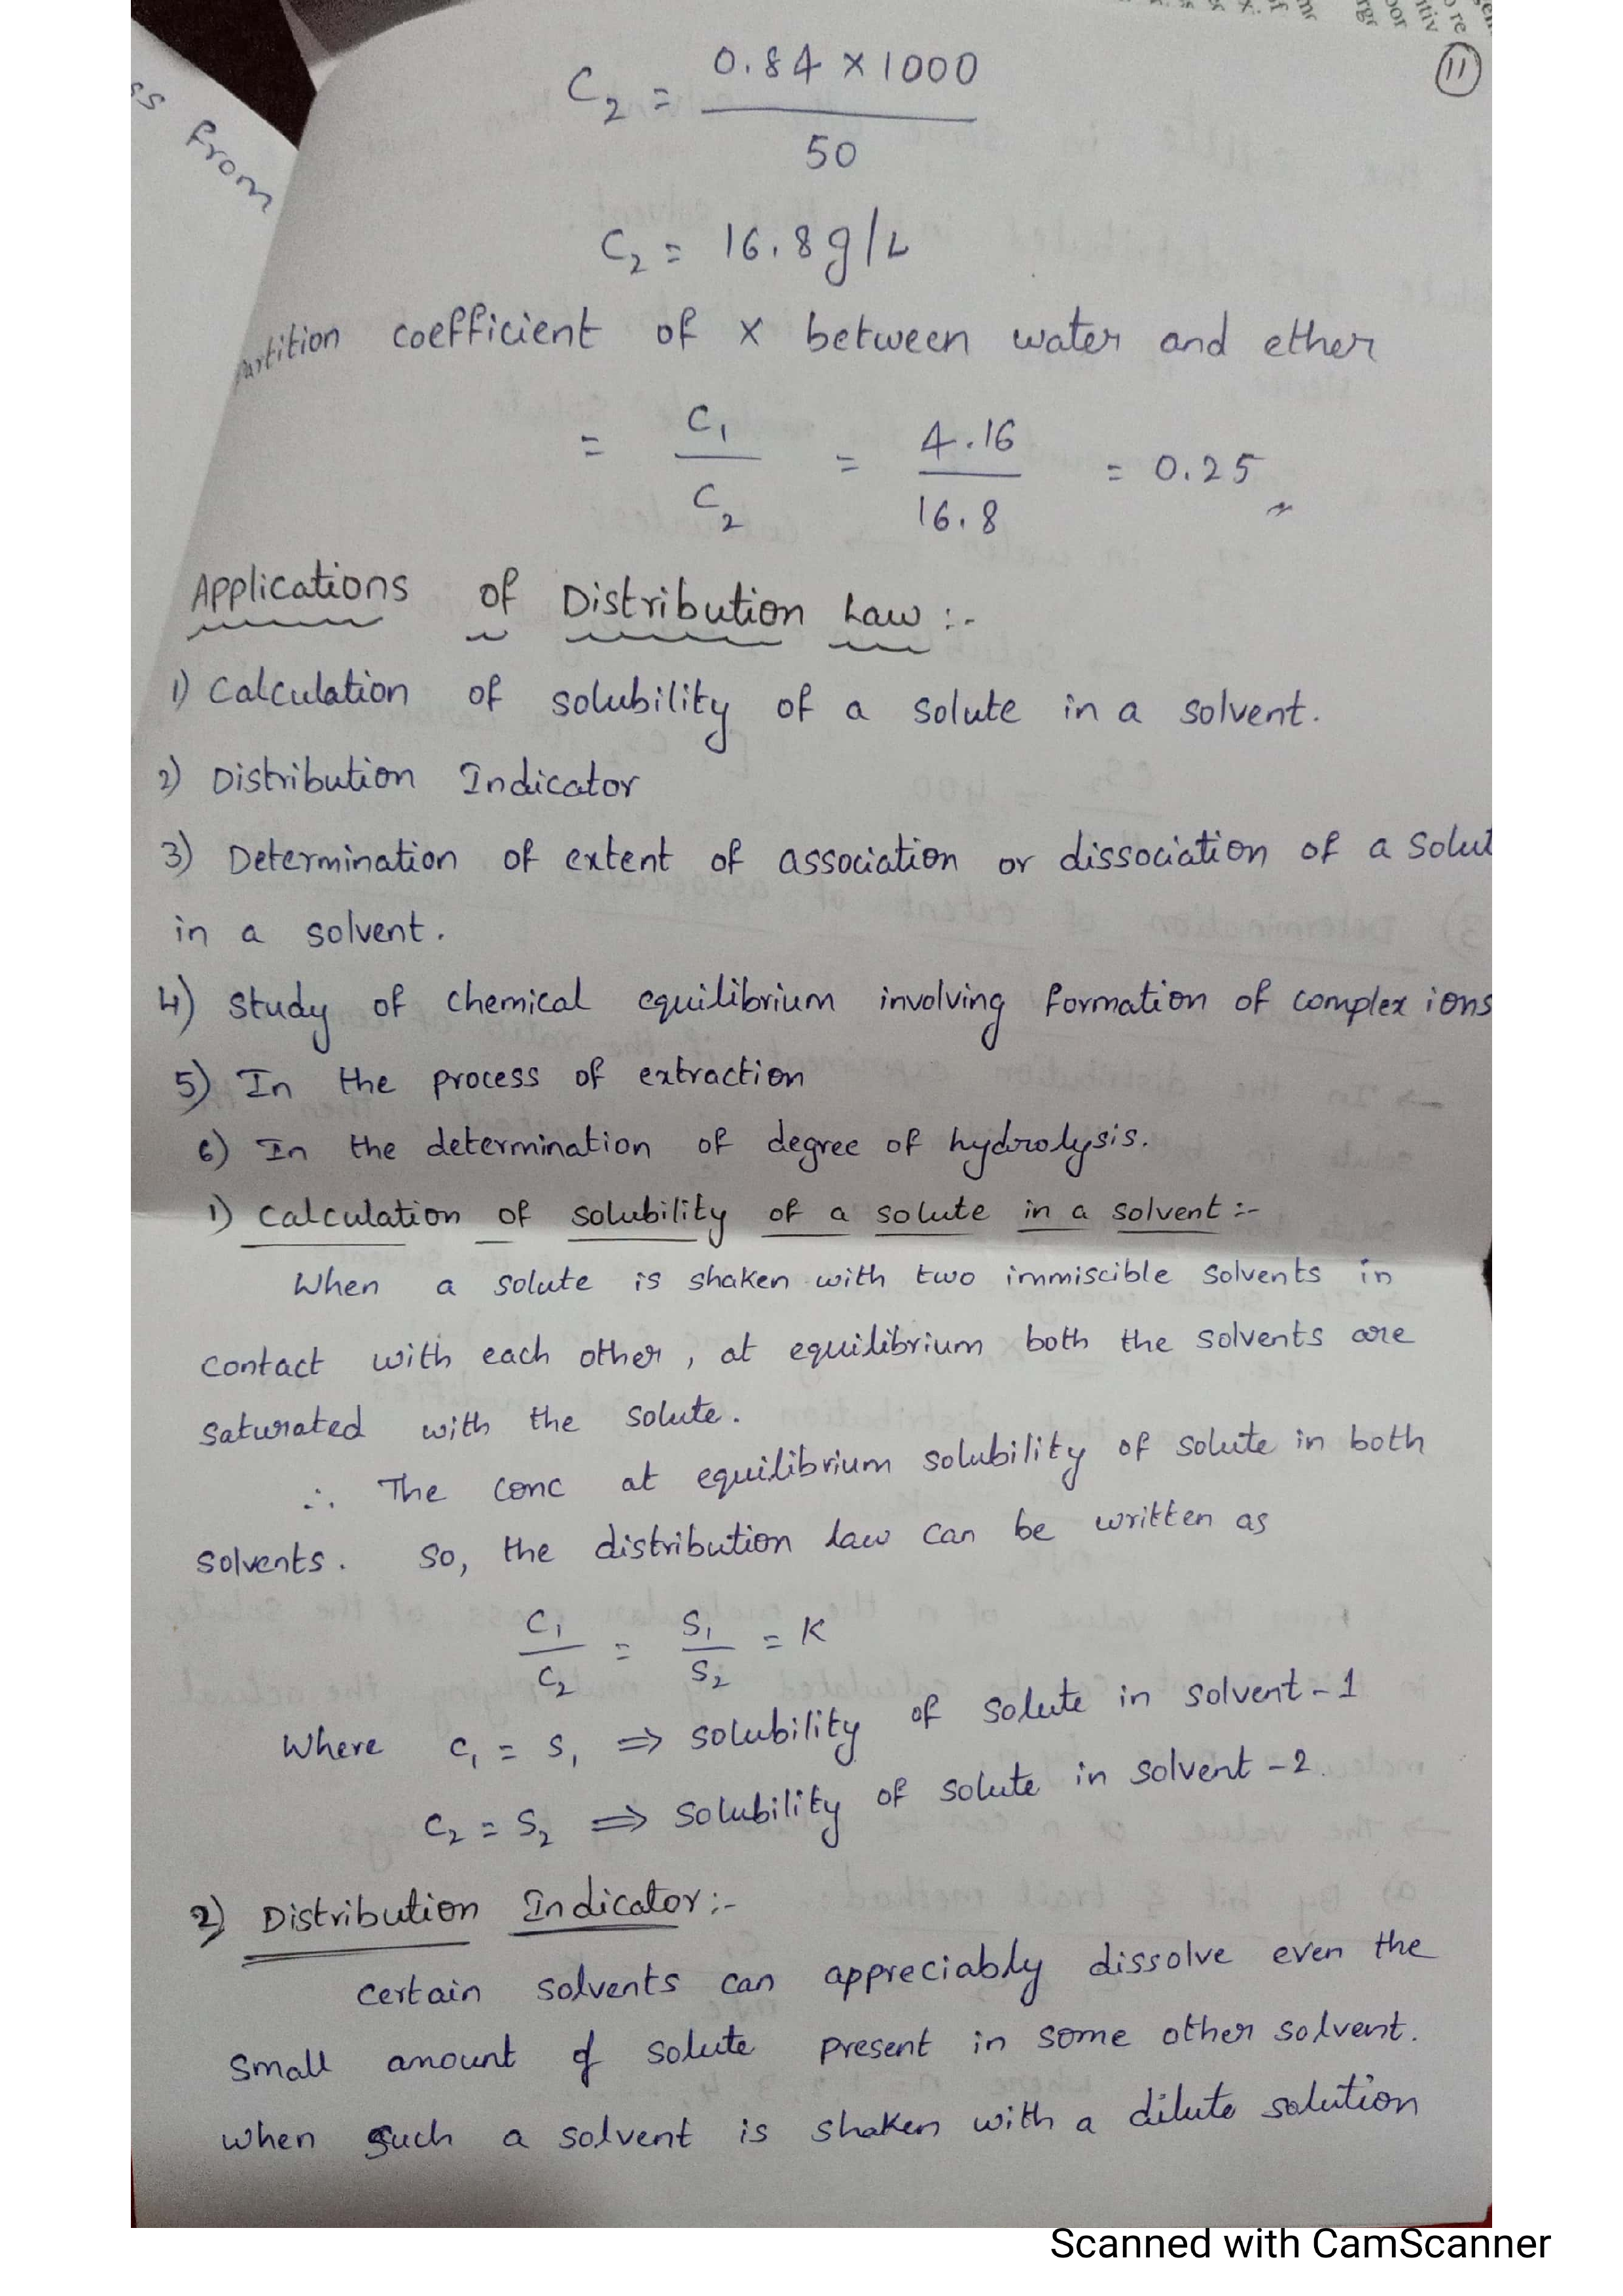 11
ss from
C2 = 0.84 × 1000 / 50
C2 = 16.8 g/L
artition coefficient of X between water and ether
= C1 / C2 = 4.16 / 16.8 = 0.25
Applications of Distribution Law :-
1) Calculation of solubility of a solute in a solvent.
2) Distribution Indicator
3) Determination of extent of association or dissociation of a solut
in a solvent.
4) Study of chemical equilibrium involving formation of complex ions
5) In the process of extraction
6) In the determination of degree of hydrolysis.
1) Calculation of solubility of a solute in a solvent :-
When a solute is shaken with two immiscible solvents in
contact with each other, at equilibrium both the solvents are
saturated with the solute.
∴ The conc at equilibrium solubility of solute in both
solvents. So, the distribution law can be written as
C1 / C2 = S1 / S2 = K
Where C1 = S1 ⇒ solubility of solute in solvent-1
C2 = S2 ⇒ solubility of solute in solvent-2.
2) Distribution Indicator :-
Certain solvents can appreciably dissolve even the
small amount of solute present in some other solvent.
when such a solvent is shaken with a dilute solution
Scanned with CamScanner